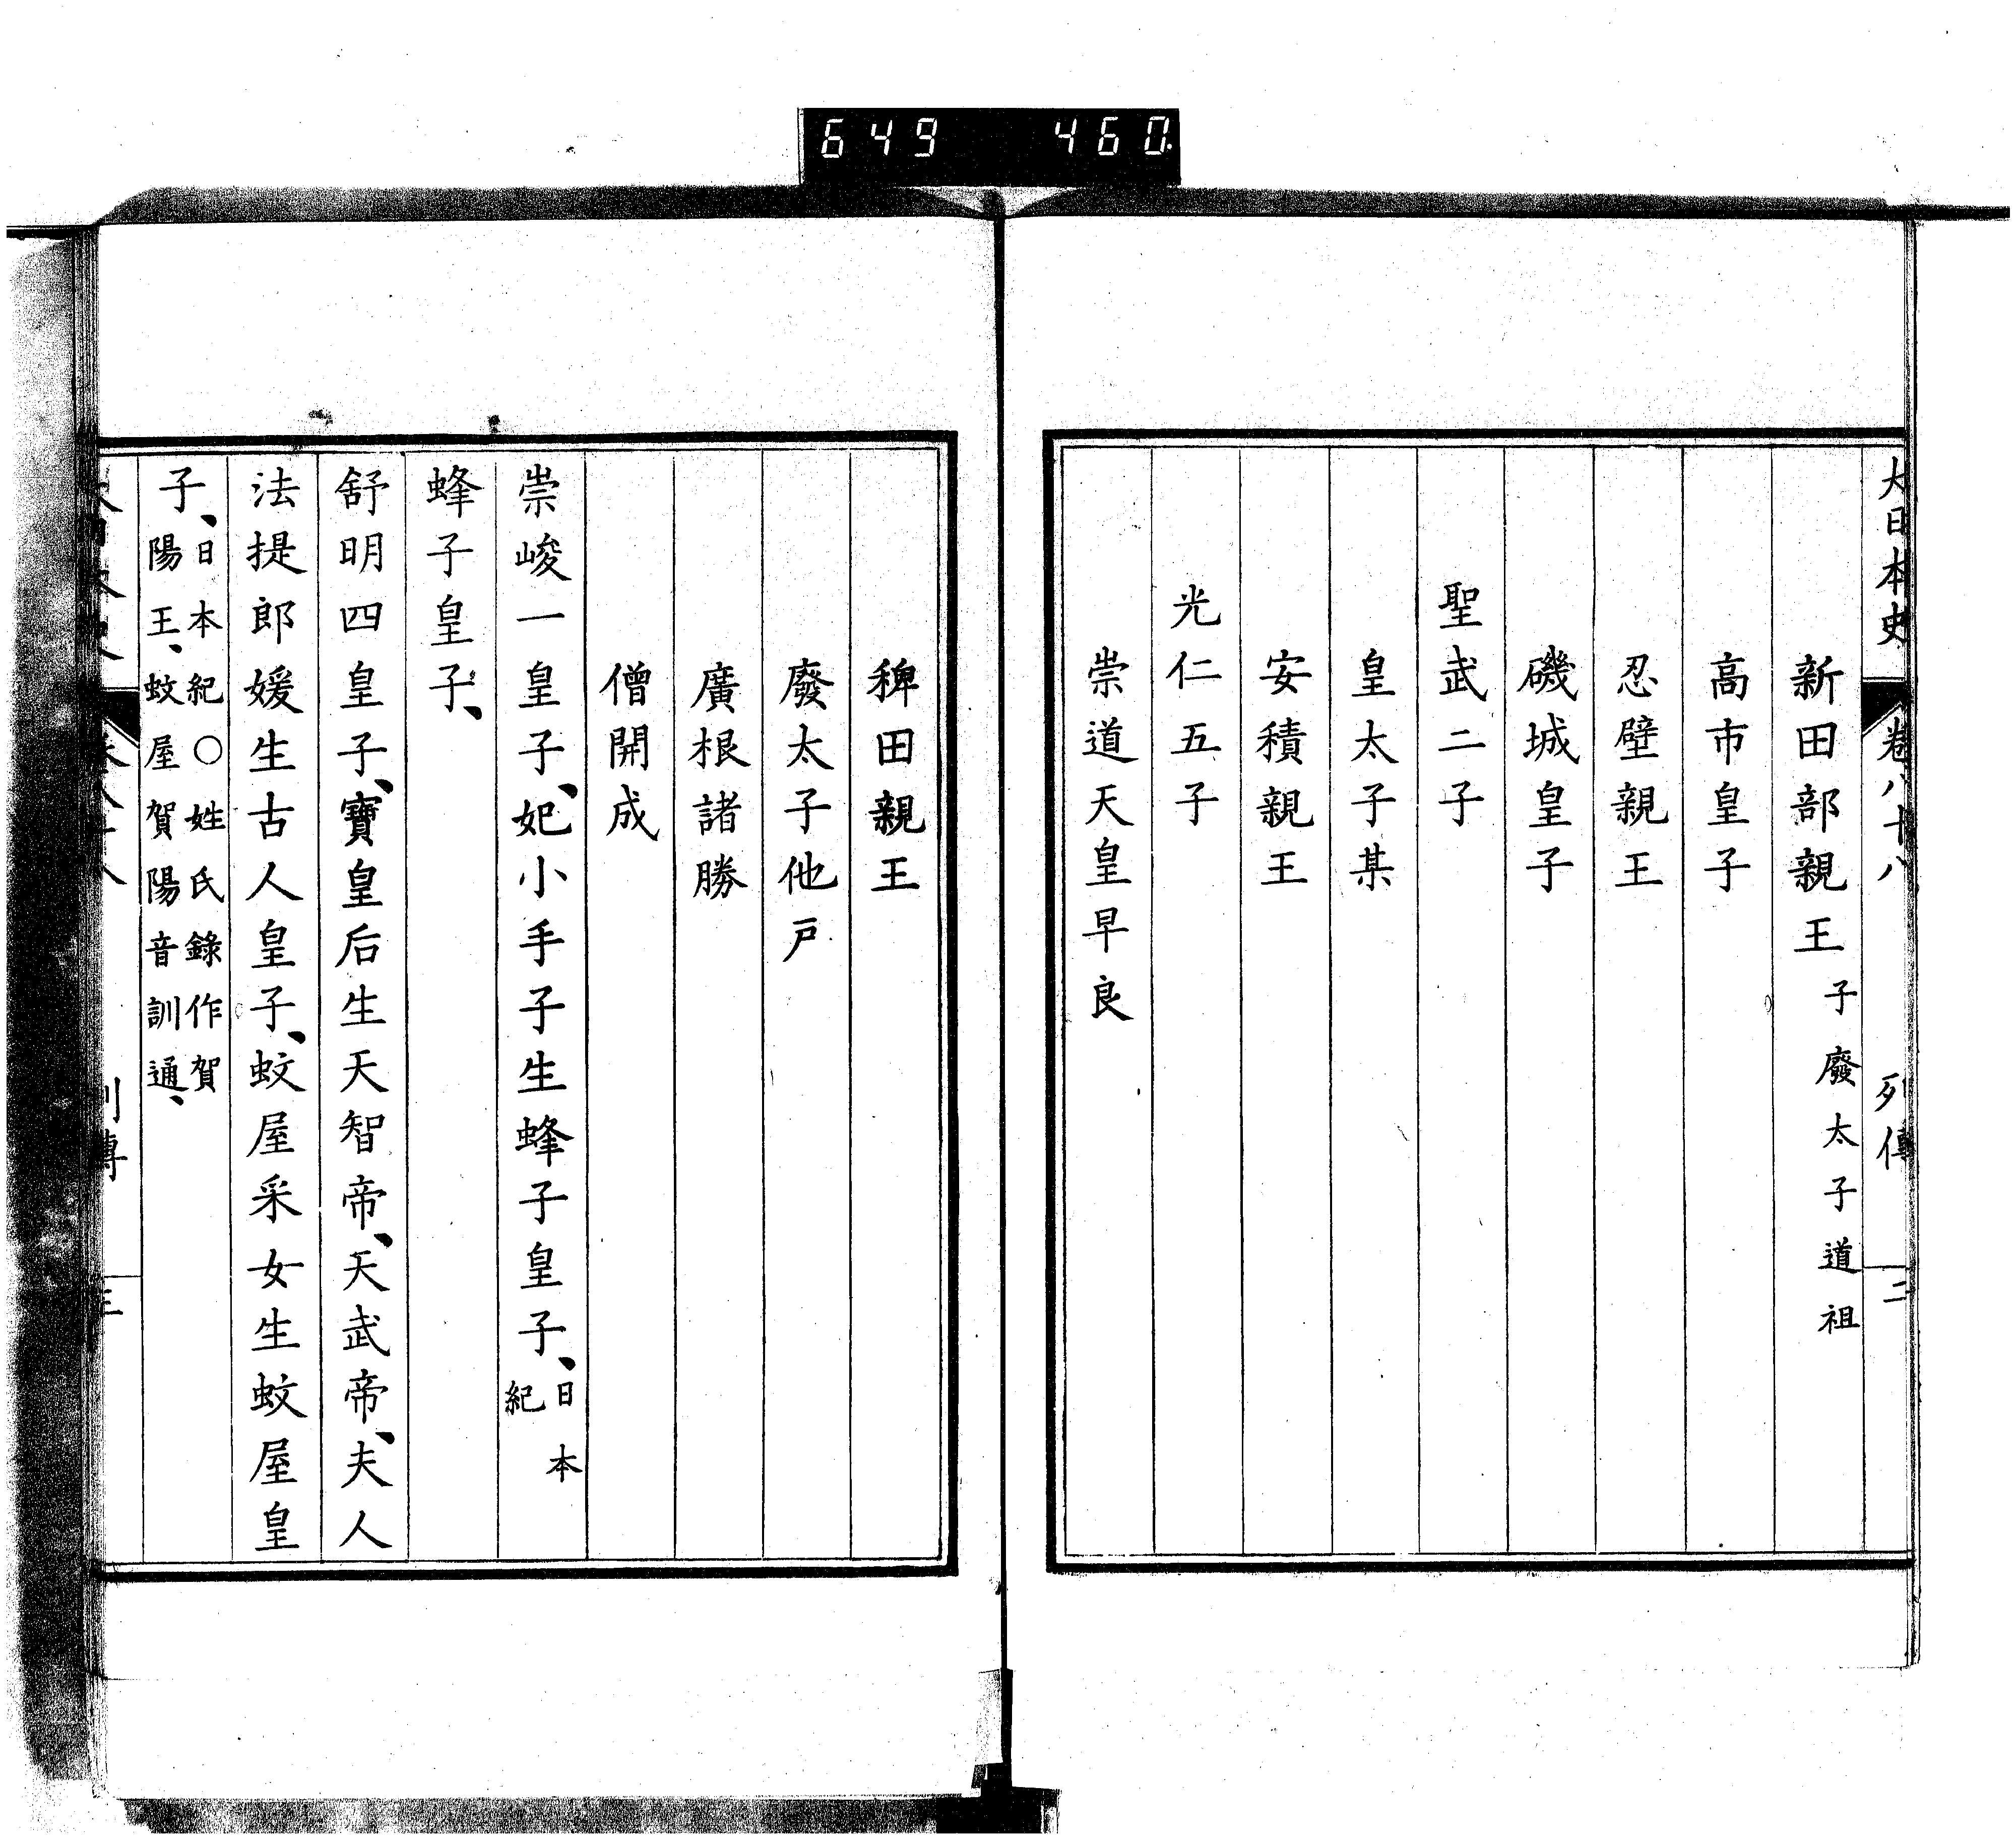 649 460
大日本史 卷八十八 列傳 二
新田部親王 子廢太子道祖
高市皇子
忍壁親王
磯城皇子
聖武二子
皇太子某
安積親王
光仁五子
崇道天皇早良
稗田親王
廢太子他戸
廣根諸勝
僧開成
崇峻一皇子、妃小手子生蜂子皇子、日本紀
蜂子皇子、
舒明四皇子、寶皇后生天智帝、天武帝、夫人
法提郎媛生古人皇子、蚊屋采女生蚊屋皇
子、日本紀〇姓氏錄作賀
陽王、蚊屋賀陽音訓通、
列傳 三